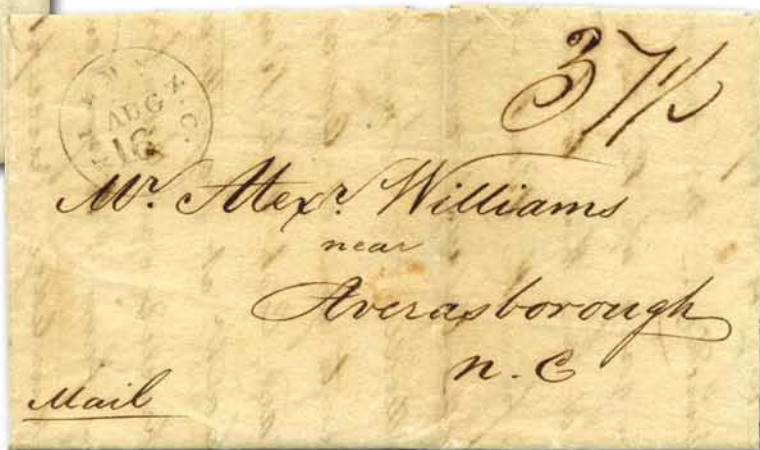 AUG
16
37½
Mr. Alexr. Williams
near
Averasborough
N. C
Mail